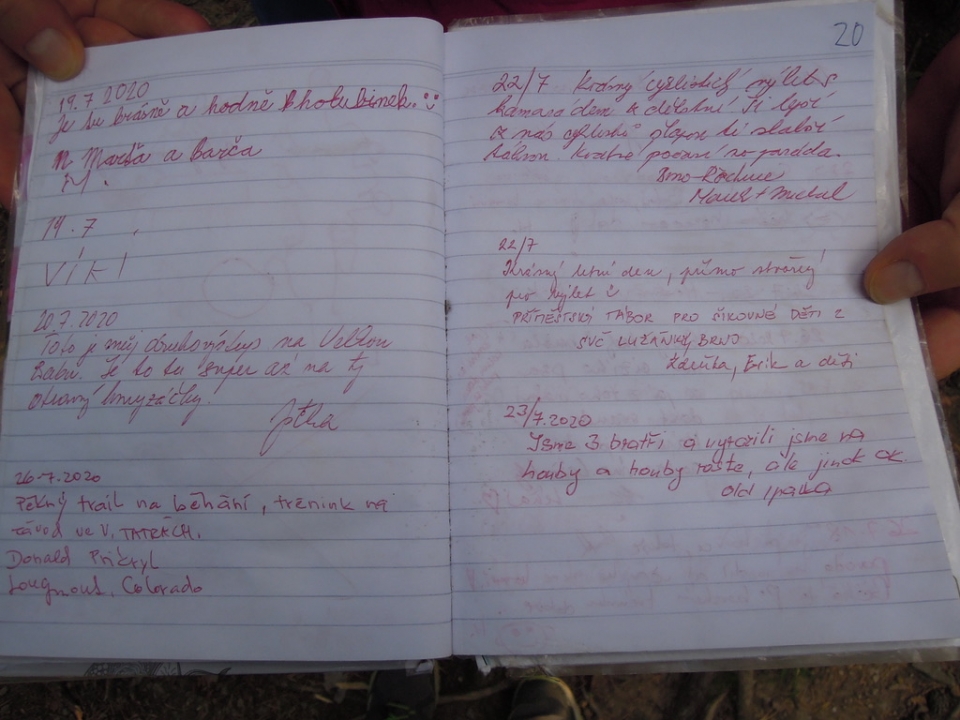 19.7 2020
Je tu krásně a hodně holubinek.
Marťa a Barča
19.7
Víki
20.7.2020
Toto je můj druhý výlup na Velkou
Babu. Je to tu super až na ty
otravný hmyzáčky.
Jitka
26.7.2020
Pěkný trail na běhání, trénink na
závod ve V. TATRÁCH.
Donald Přikryl
Longmont, Colorado
20
22/7 Krásný cyklistický výlet s
kamarádem z dětství. Ti lepší
z nás cyklistů
Brno-Řečkovice
+ Michal
22/7
Krásný letní den, přímo stvořený
pro výlet
PŘÍMĚSTSKÝ TÁBOR PRO ŠIKOVNÉ DĚTI Z
SVČ LUŽÁNKY BRNO
Zdeňka, Erik a děti
23/7.2020
Jsme 3 bratři a vyrazili jsme na
houby a houby roste, ale jinak ok.
old